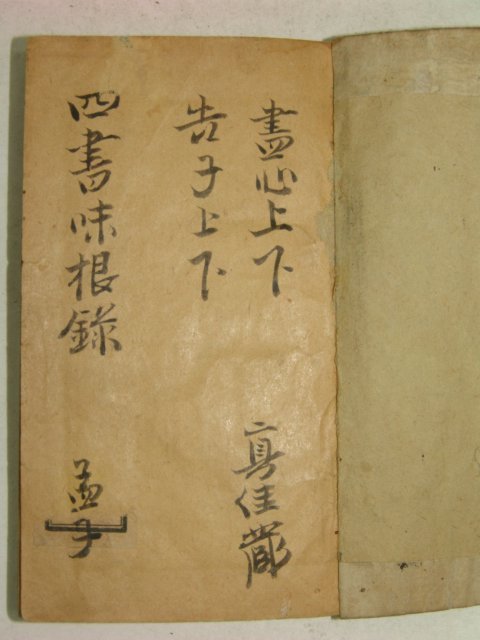 盡心上下
告子上下
四書味根錄
孟子